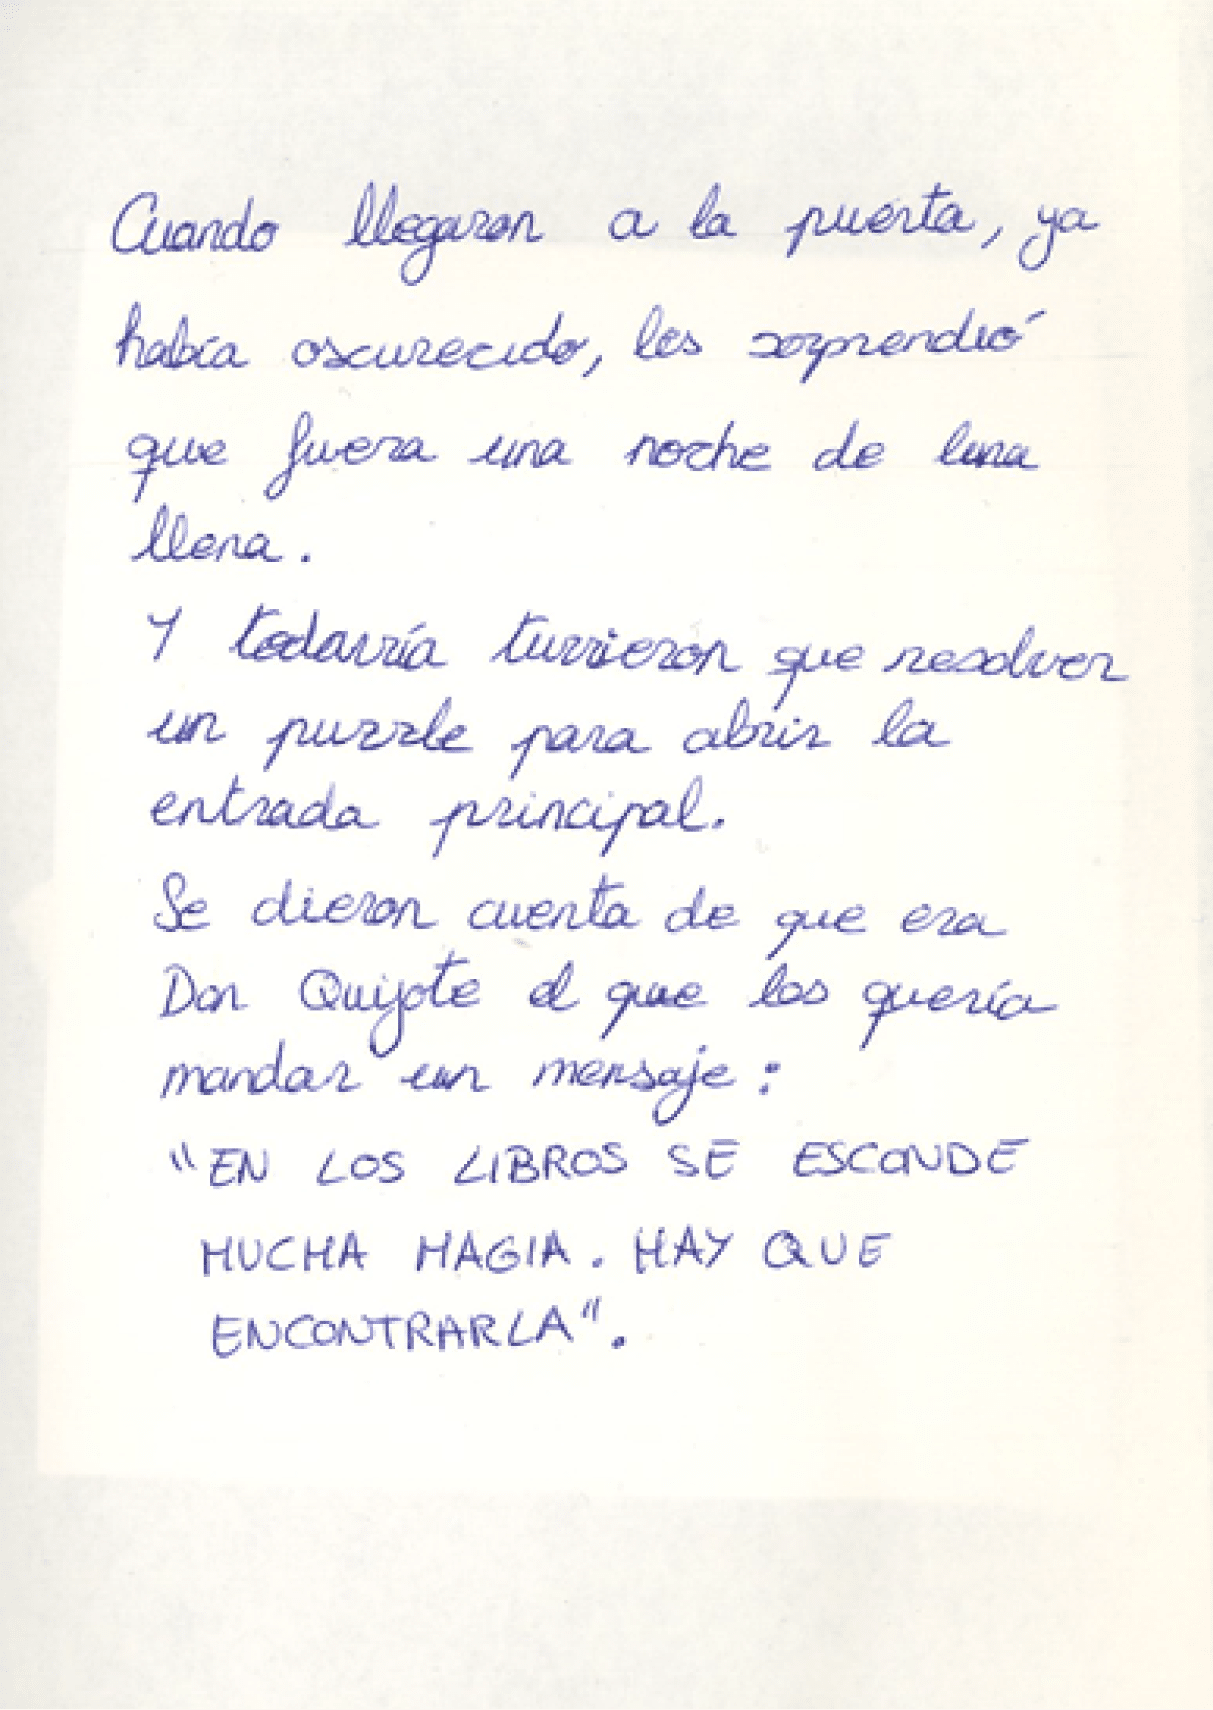 Cuando llegaron a la puerta, ya
había oscurecido, les sorprendió
que fuera una noche de luna
llena.
Y todavía tuvieron que resolver
un puzzle para abrir la
entrada principal.
Se dieron cuenta de que era
Don Quijote el que los quería
mandar un mensaje:
"EN LOS LIBROS SE ESCONDE
MUCHA MAGIA. HAY QUE
ENCONTRARLA".